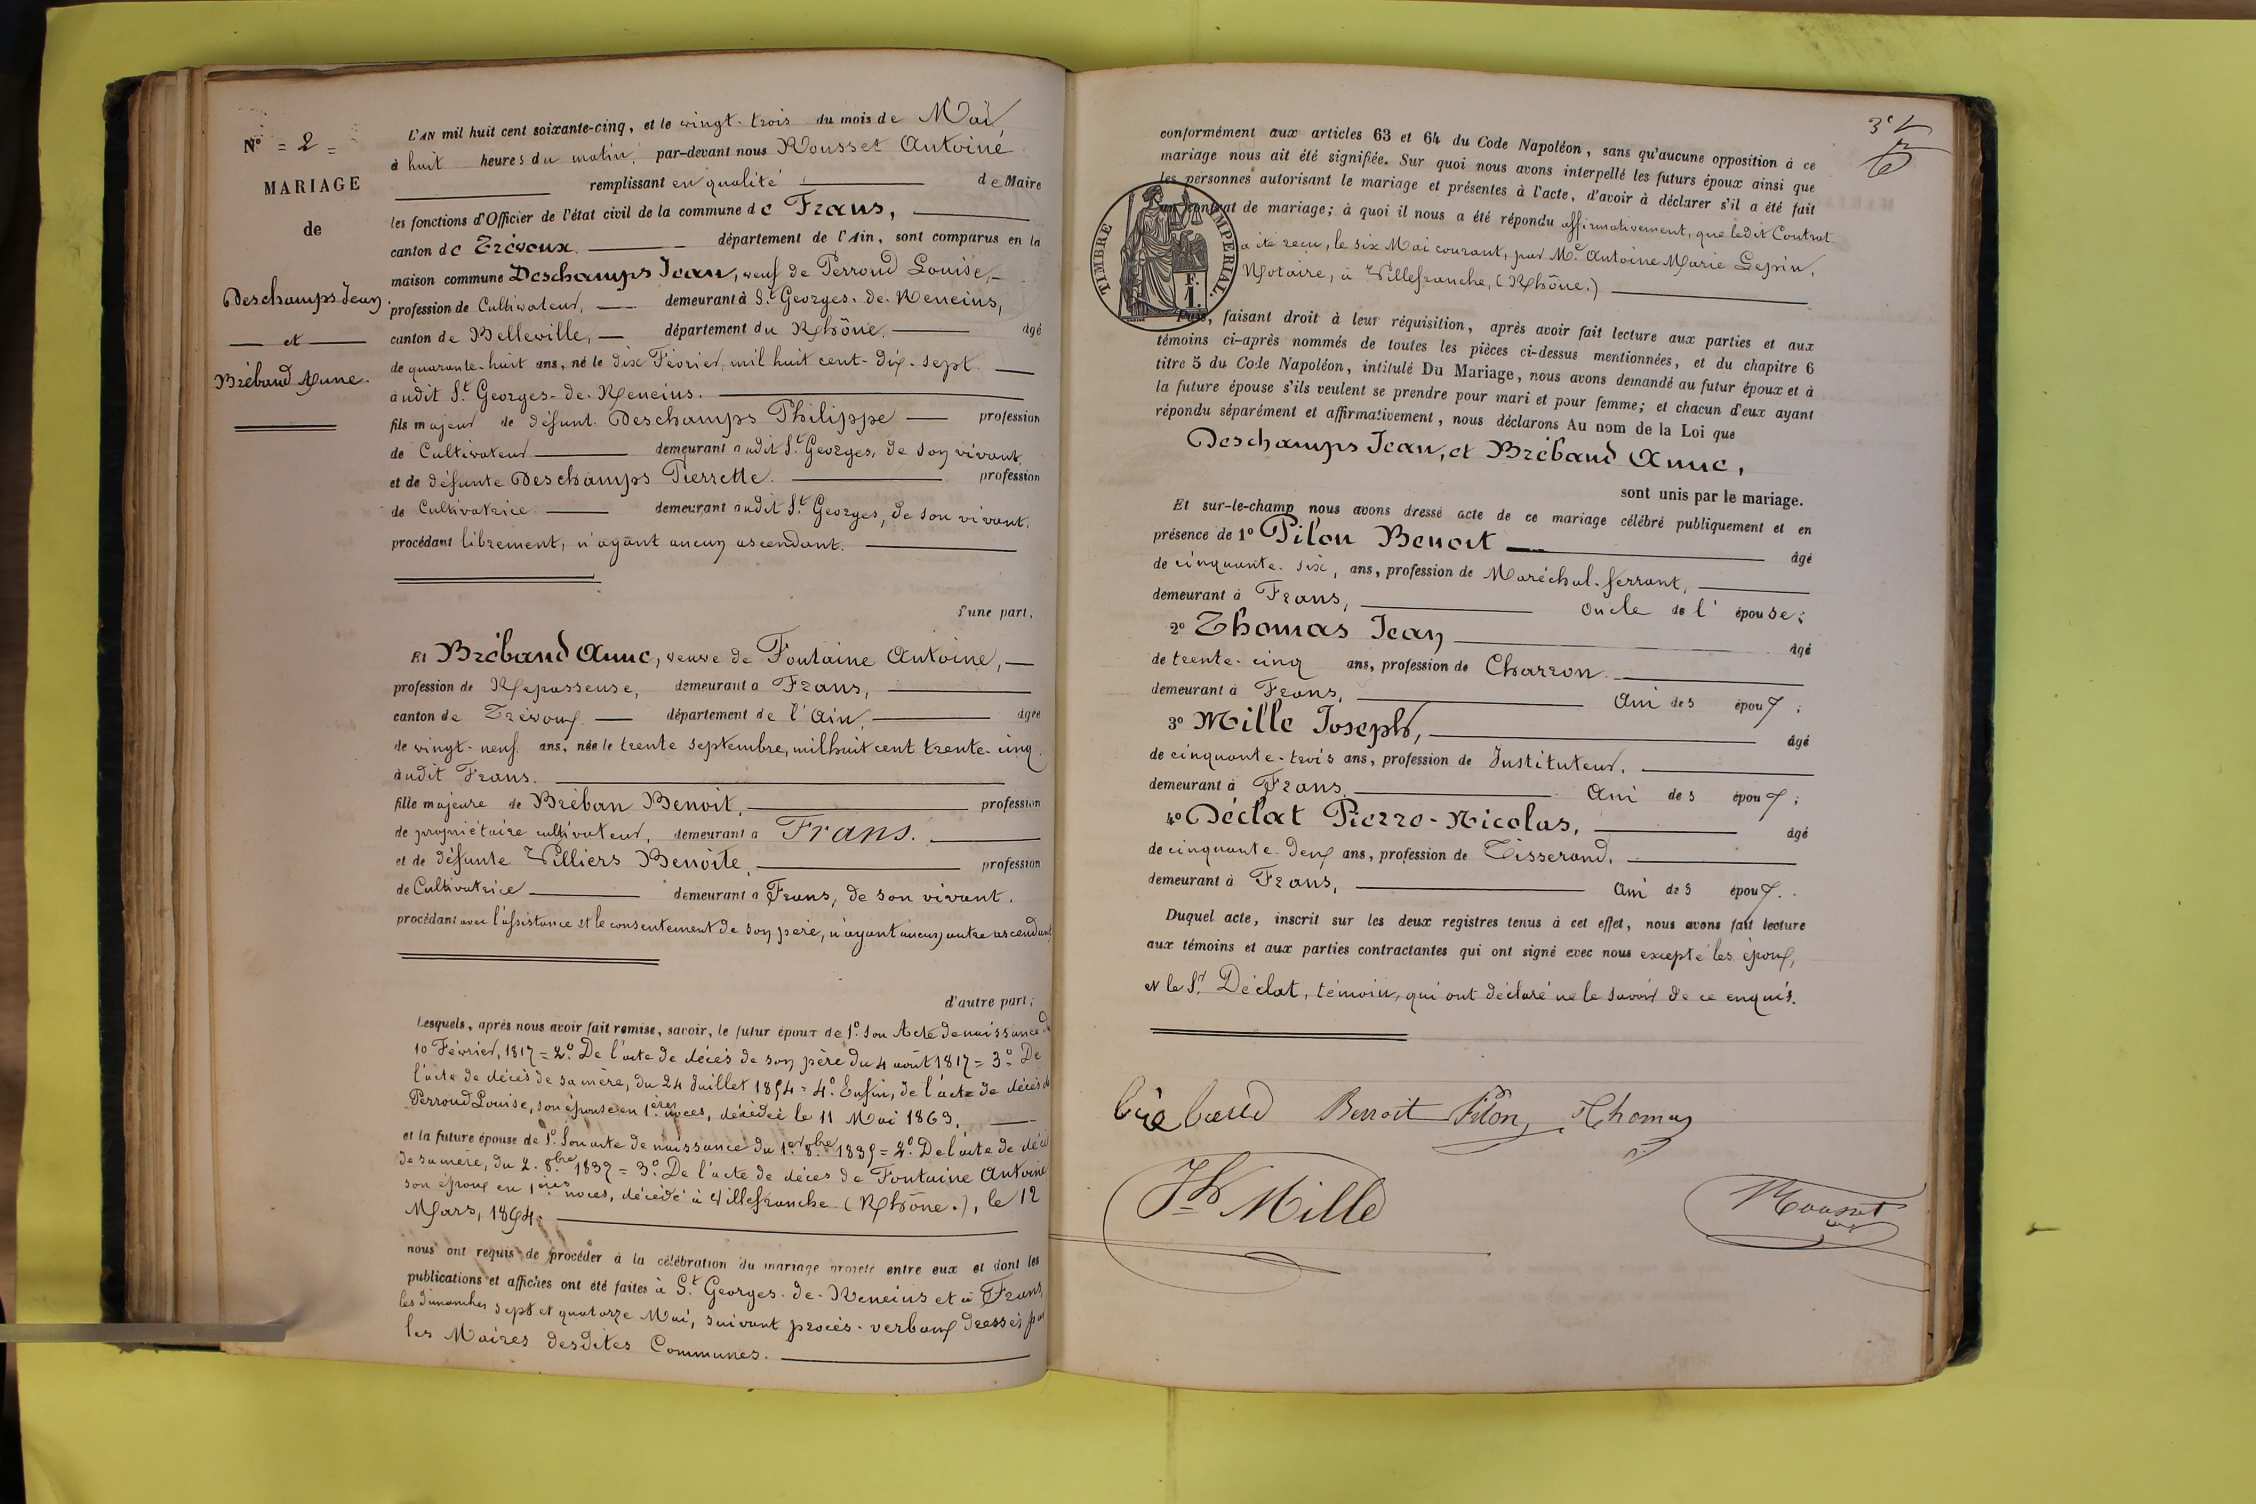 N° = 2 =
MARIAGE
de
Deschamps Jean
et
Brébaud Anne.
L'AN mil huit cent soixante-cinq, et le vingt-trois du mois de Mai,
à huit heures du matin, par-devant nous Rousset Antoine
remplissant en qualité de Maire
les fonctions d'Officier de l'état civil de la commune de Frans,
canton de Trévoux. département de l'Ain, sont comparus en la
maison commune Deschamps Jean, veuf de Perroud Louise,
profession de Cultivateur, demeurant à St Georges-de-Reneins,
canton de Belleville, département du Rhône, âgé
de quarante-huit ans, né le dix Février, mil huit cent-dix-sept.
à udit St Georges-de-Reneins.
fils majeur de défunt Deschamps Philippe profession
de Cultivateur demeurant audit St Georges, de son vivant,
et de défunte Deschamps Pierrette. profession
de Cultivatrice demeurant audit St Georges, de son vivant.
procédant librement, n'ayant aucun ascendant.
d'une part.
Et Brébaud Anne, veuve de Fontaine Antoine,
profession de Repasseuse, demeurant à Frans,
canton de Trévoux. département de l'Ain, âgée
de vingt-neuf ans, née le trente septembre, mil huit cent trente-cinq
àudit Frans.
fille majeure de Bréban Benoit, profession
de propriétaire cultivateur, demeurant à Frans.
et de défunte Villiers Benoite, profession
de Cultivatrice demeurant à Frans, de son vivant.
procédant avec l'assistance et le consentement de son père, n'ayant aucun autre ascendant
d'autre part;
Lesquels, après nous avoir fait remise, savoir, le futur époux de 1° Son Acte de naissance du
10 Février, 1817 = 2° De l'acte de décès de son père du 4 août 1817 = 3° De
l'acte de décès de sa mère, du 24 Juillet 1854 = 4° Enfin, de l'acte de décès de
Perroud Louise, son épouse en 1ères noces, décédée le 11 Mai 1863.
et la future épouse de 1° Son acte de naissance du 1er 8bre 1835 = 2° De l'acte de décès
de sa mère, du 2. 8bre 1837 = 3° De l'acte de décès de Fontaine Antoine
son époux en 1ères noces, décédé à Villefranche (Rhône.), le 12
Mars, 1864.
nous ont requis de procéder à la célébration du mariage projeté entre eux et dont les
publications et affiches ont été faites à St Georges-de-Reneins et à Frans,
les dimanches sept et quatorze Mai, suivant procès-verbaux dressés par
les Maires desdites Communes.
conformément aux articles 63 et 64 du Code Napoléon, sans qu'aucune opposition à ce
mariage nous ait été signifiée. Sur quoi nous avons interpellé les futurs époux ainsi que
les personnes autorisant le mariage et présentes à l'acte, d'avoir à déclarer s'il a été fait
un contrat de mariage; à quoi il nous a été répondu affirmativement, que ledit Contrat
a été reçu, le six Mai courant, par Me Antoine Marie Lepin,
Notaire, à Villefranche, (Rhône.)
TIMBRE IMPERIAL.
1. F.
Puis, faisant droit à leur réquisition, après avoir fait lecture aux parties et aux
témoins ci-après nommés de toutes les pièces ci-dessus mentionnées, et du chapitre 6
titre 5 du Code Napoléon, intitulé Du Mariage, nous avons demandé au futur époux et à
la future épouse s'ils veulent se prendre pour mari et pour femme; et chacun d'eux ayant
répondu séparément et affirmativement, nous déclarons Au nom de la Loi que
Deschamps Jean, et Brébaud Anne,
sont unis par le mariage.
Et sur-le-champ nous avons dressé acte de ce mariage célébré publiquement et en
présence de 1° Pilon Benoit âgé
de cinquante-six, ans, profession de Maréchal-ferrant,
demeurant à Frans, oncle de l'épouse;
2° Thomas Jean âgé
de trente-cinq ans, profession de Charron.
demeurant à Frans, Ami des époux;
3° Mille Joseph, âgé
de cinquante-trois ans, profession de Instituteur,
demeurant à Frans, Ami des époux;
4° Déclat Pierre-Nicolas, âgé
de cinquante-deux ans, profession de Tisserand,
demeurant à Frans, Ami des époux.
Duquel acte, inscrit sur les deux registres tenus à cet effet, nous avons fait lecture
aux témoins et aux parties contractantes qui ont signé avec nous excepté les époux,
et le Sr Déclat, témoin, qui ont déclaré ne le savoir de ce enquis.
brebaud Benoit Pilon, Thomas
Jh Mille Rousset